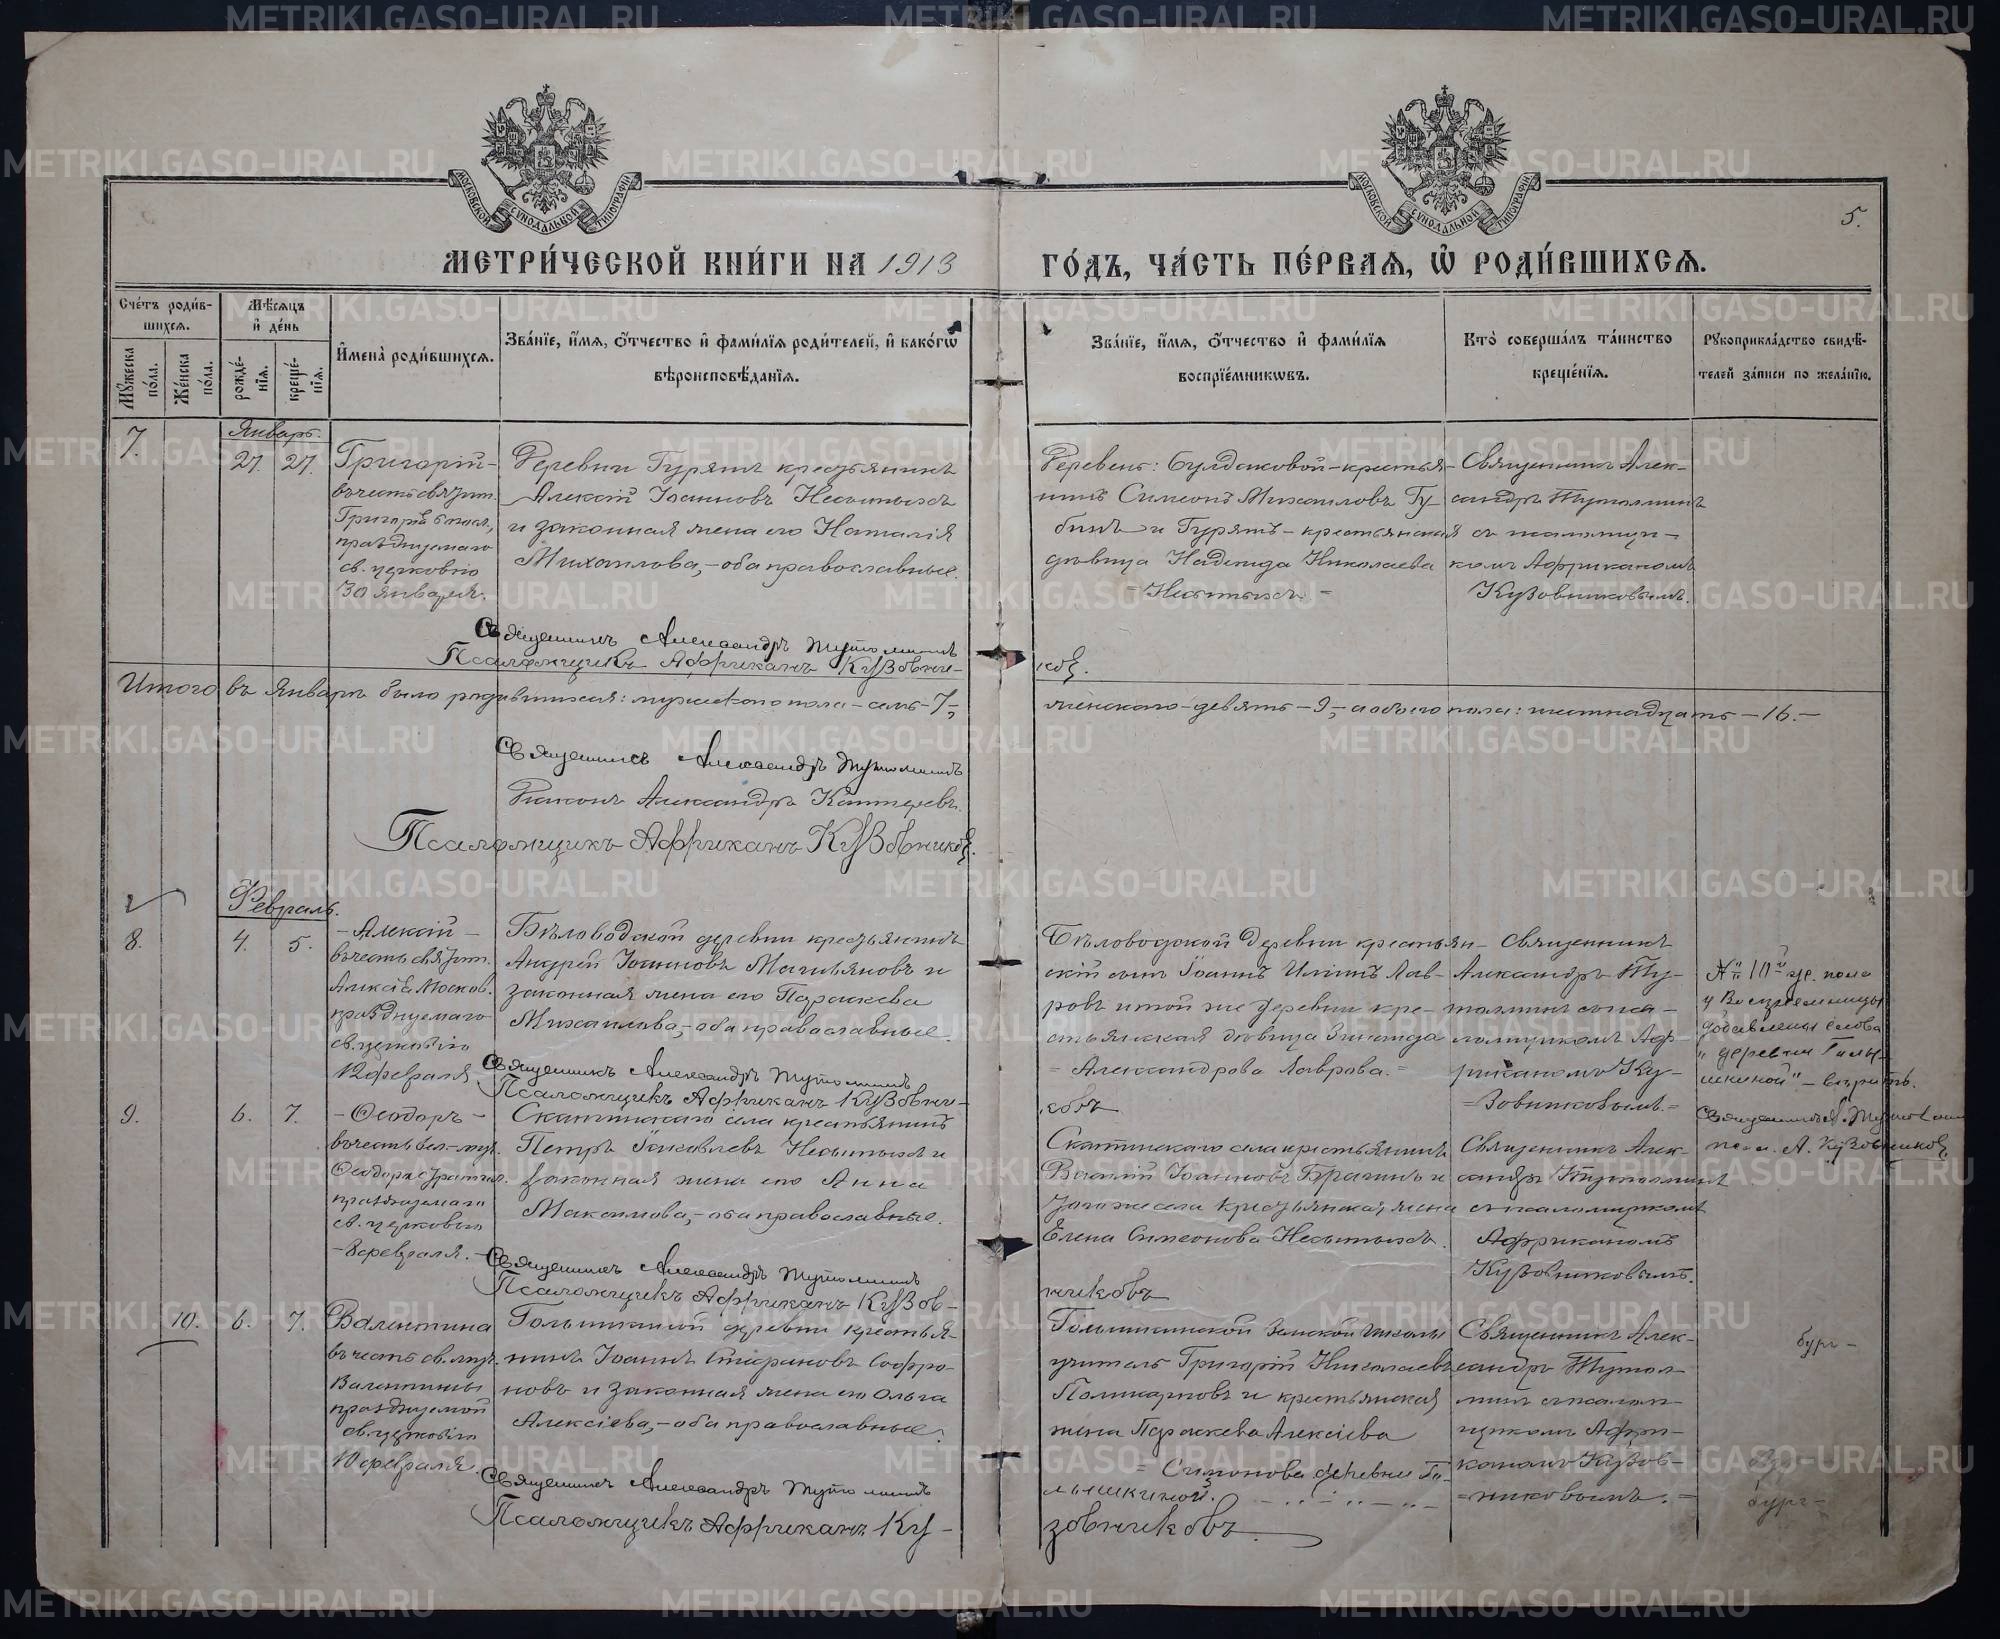 МОСКОВСКОЙ СѴНОДАЛЬНОЙ ТИПОГРАФІИ
МОСКОВСКОЙ СѴНОДАЛЬНОЙ ТИПОГРАФІИ
5.
МЕТРИ́ЧЕСКОЙ КНИ́ГИ НА 1913
ГО́ДЪ, ЧА́СТЬ ПЕ́РВАѦ, Ѡ҆ РОДИ́ВШИХСѦ.
Сче́тъ роди́в-
шихсѧ.
Мѣ́сѧцъ
и҆ де́нь
Мꙋ́жеска по́ла.
Же́нска по́ла.
рожде́-
нїѧ.
креще́-
нїѧ.
И҆мена̀ роди́вшихсѧ.
Зва́нїе, и҆́мѧ, ѻ҆́тчество и҆ фами́лїѧ роди́телей, и҆ како́гѡ
вѣроисповѣ́данїѧ.
Зва́нїе, и҆́мѧ, ѻ҆́тчество и҆ фами́лїѧ
воспрїе́мникѡвъ.
Кто̀ соверша́лъ та́инство
креще́нїѧ.
Рꙋкоприкла́дство свидѣ́-
телей за́писи по жела́нїю.
Январь.
7.
27. 27.
Григорій-
въ честь свят.
Григорія
празднуемаго
св. церковію
30 января.
Деревни Гурятъ крестьянинъ
Алексій Іоанновъ Несытыхъ
и законная жена его Наталія
Михаилова,-оба православные.
Деревень: Булдаковой-крестья-
нинъ Симеонъ Михаиловъ Гу-
бинъ и Гурятъ-крестьянская
дѣвица Надежда Николаева
=Несытыхъ=
Священникъ Алек-
сандръ Тутолминъ
съ псаломщи-
комъ Африканомъ
Кузовниковымъ.
Священникъ Александръ Тутолминъ
Псаломщикъ Африканъ Кузовни-
ковъ.
Итого въ январѣ было родившихся: мужескаго пола-семь-7-,
женскаго-девять-9,-а обоего пола: шестнадцать-16.-
Священникъ Александръ Тутолминъ
Діаконъ Александръ
Псаломщикъ Африканъ Кузовниковъ.
Февраль.
8.
4. 5.
-Алексій-
въ честь свят.
Алексія Москов.
празднуемаго
св. церковію
12 февраля
Бѣловодской деревни крестьянинъ
Андрей Іоанновъ и
законная жена его Параскева
Михаилова,-оба православные.
Бѣловодской деревни крестьян-
скій сынъ Іоаннъ Лав-
ровъ и той же деревни кре-
стьянская дѣвица Зинаида
=Александрова Лаврова.=
Священникъ
Александръ Ту-
толминъ съ пса-
ломщикомъ Аф-
риканомъ Ку-
=зовниковымъ.=
№ 10й жен. пола
у Воспріемницы
добавлены слова
"деревни Голы-
шкиной"-вѣрить.
Священникъ А. Тутолминъ
псал. А. Кузовниковъ
Священникъ Александръ Тутолминъ
Псаломщикъ Африканъ Кузовни-
ковъ
9.
6. 7.
-Ѳеодоръ-
въ честь вел.-муч.
Ѳеодора Стратил.
празднуемаго
св. церковію
-8 февраля.-
Скатинскаго села крестьянинъ
Петръ Іаковлевъ Несытыхъ и
законная жена его Анна
Максимова,-оба православные.
Скатинскаго села крестьянинъ
Василій Іоанновъ Брагинъ и
того же села крестьянская жена
Елена Симеонова Несытыхъ.
Священникъ Алек-
сандръ Тутолминъ
съ псаломщикомъ
Африканомъ
Кузовниковымъ.
Священникъ Александръ Тутолминъ
Псаломщикъ Африканъ Кузов-
никовъ
10.
6. 7.
Валентина
въ честь св. муч.
Валентины
празднуемой
св. церковію
10 февраля.
Голышкиной деревни крестья-
нинъ Іоаннъ Стефановъ Софро-
новъ и законная жена его Ольга
Алексіева,-оба православные.
Голышкинской Земской школы
учитель Григорій Николаевъ
Поликарповъ и крестьянская
жена Параскева Алексіева
=Симонова деревни Го-
лышкиной.
Священникъ Алек-
сандръ Тутол-
минъ съ псалом-
щикомъ Афри-
каномъ Кузов-
=никовымъ.=
Священникъ Александръ Тутолминъ
Псаломщикъ Африканъ Ку-
зовниковъ.
METRIKI.GASO-URAL.RU